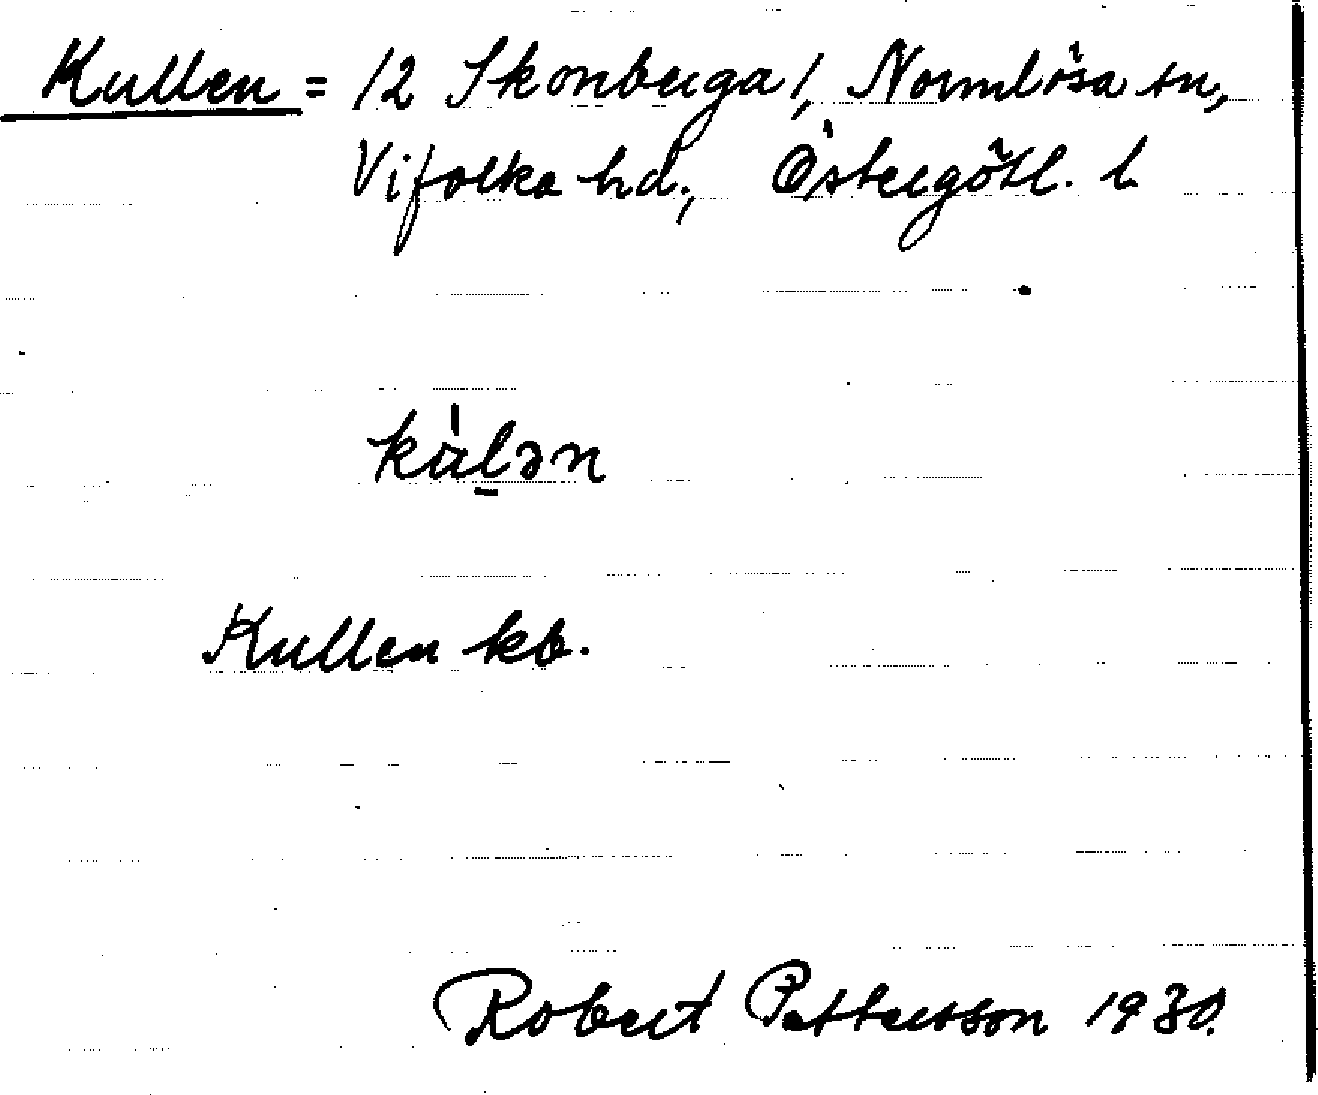 Kullen = /2 Skonberga/, Normlösa sn,
Vifolka hd., Östergötl. l.
kàlən
Kullen kb.
Robert Pettersson 1930.